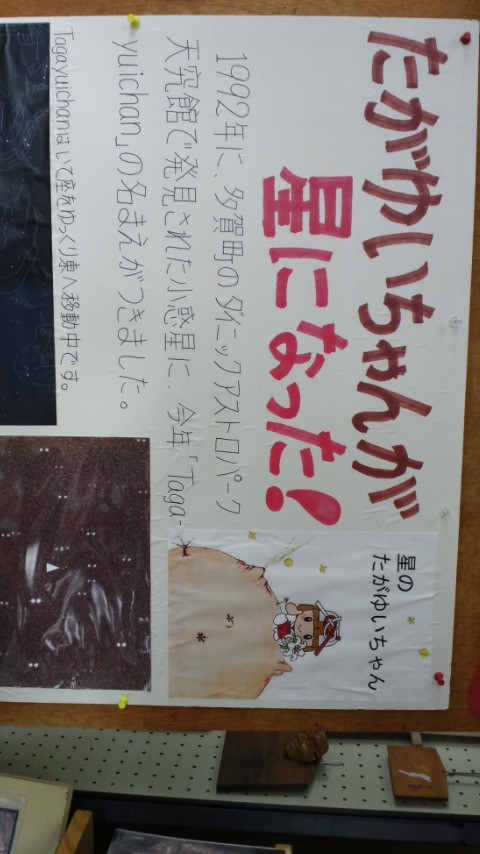 たがゆいちゃんが
星になった!
1992年に、多賀町のダイニックアストロパーク
天究館で発見された小惑星に、今年「Taga-
yuichan」の名まえがつきました。
Tagayuichanはいて座をゆっくり東へ移動中です。
星の
たがゆいちゃん